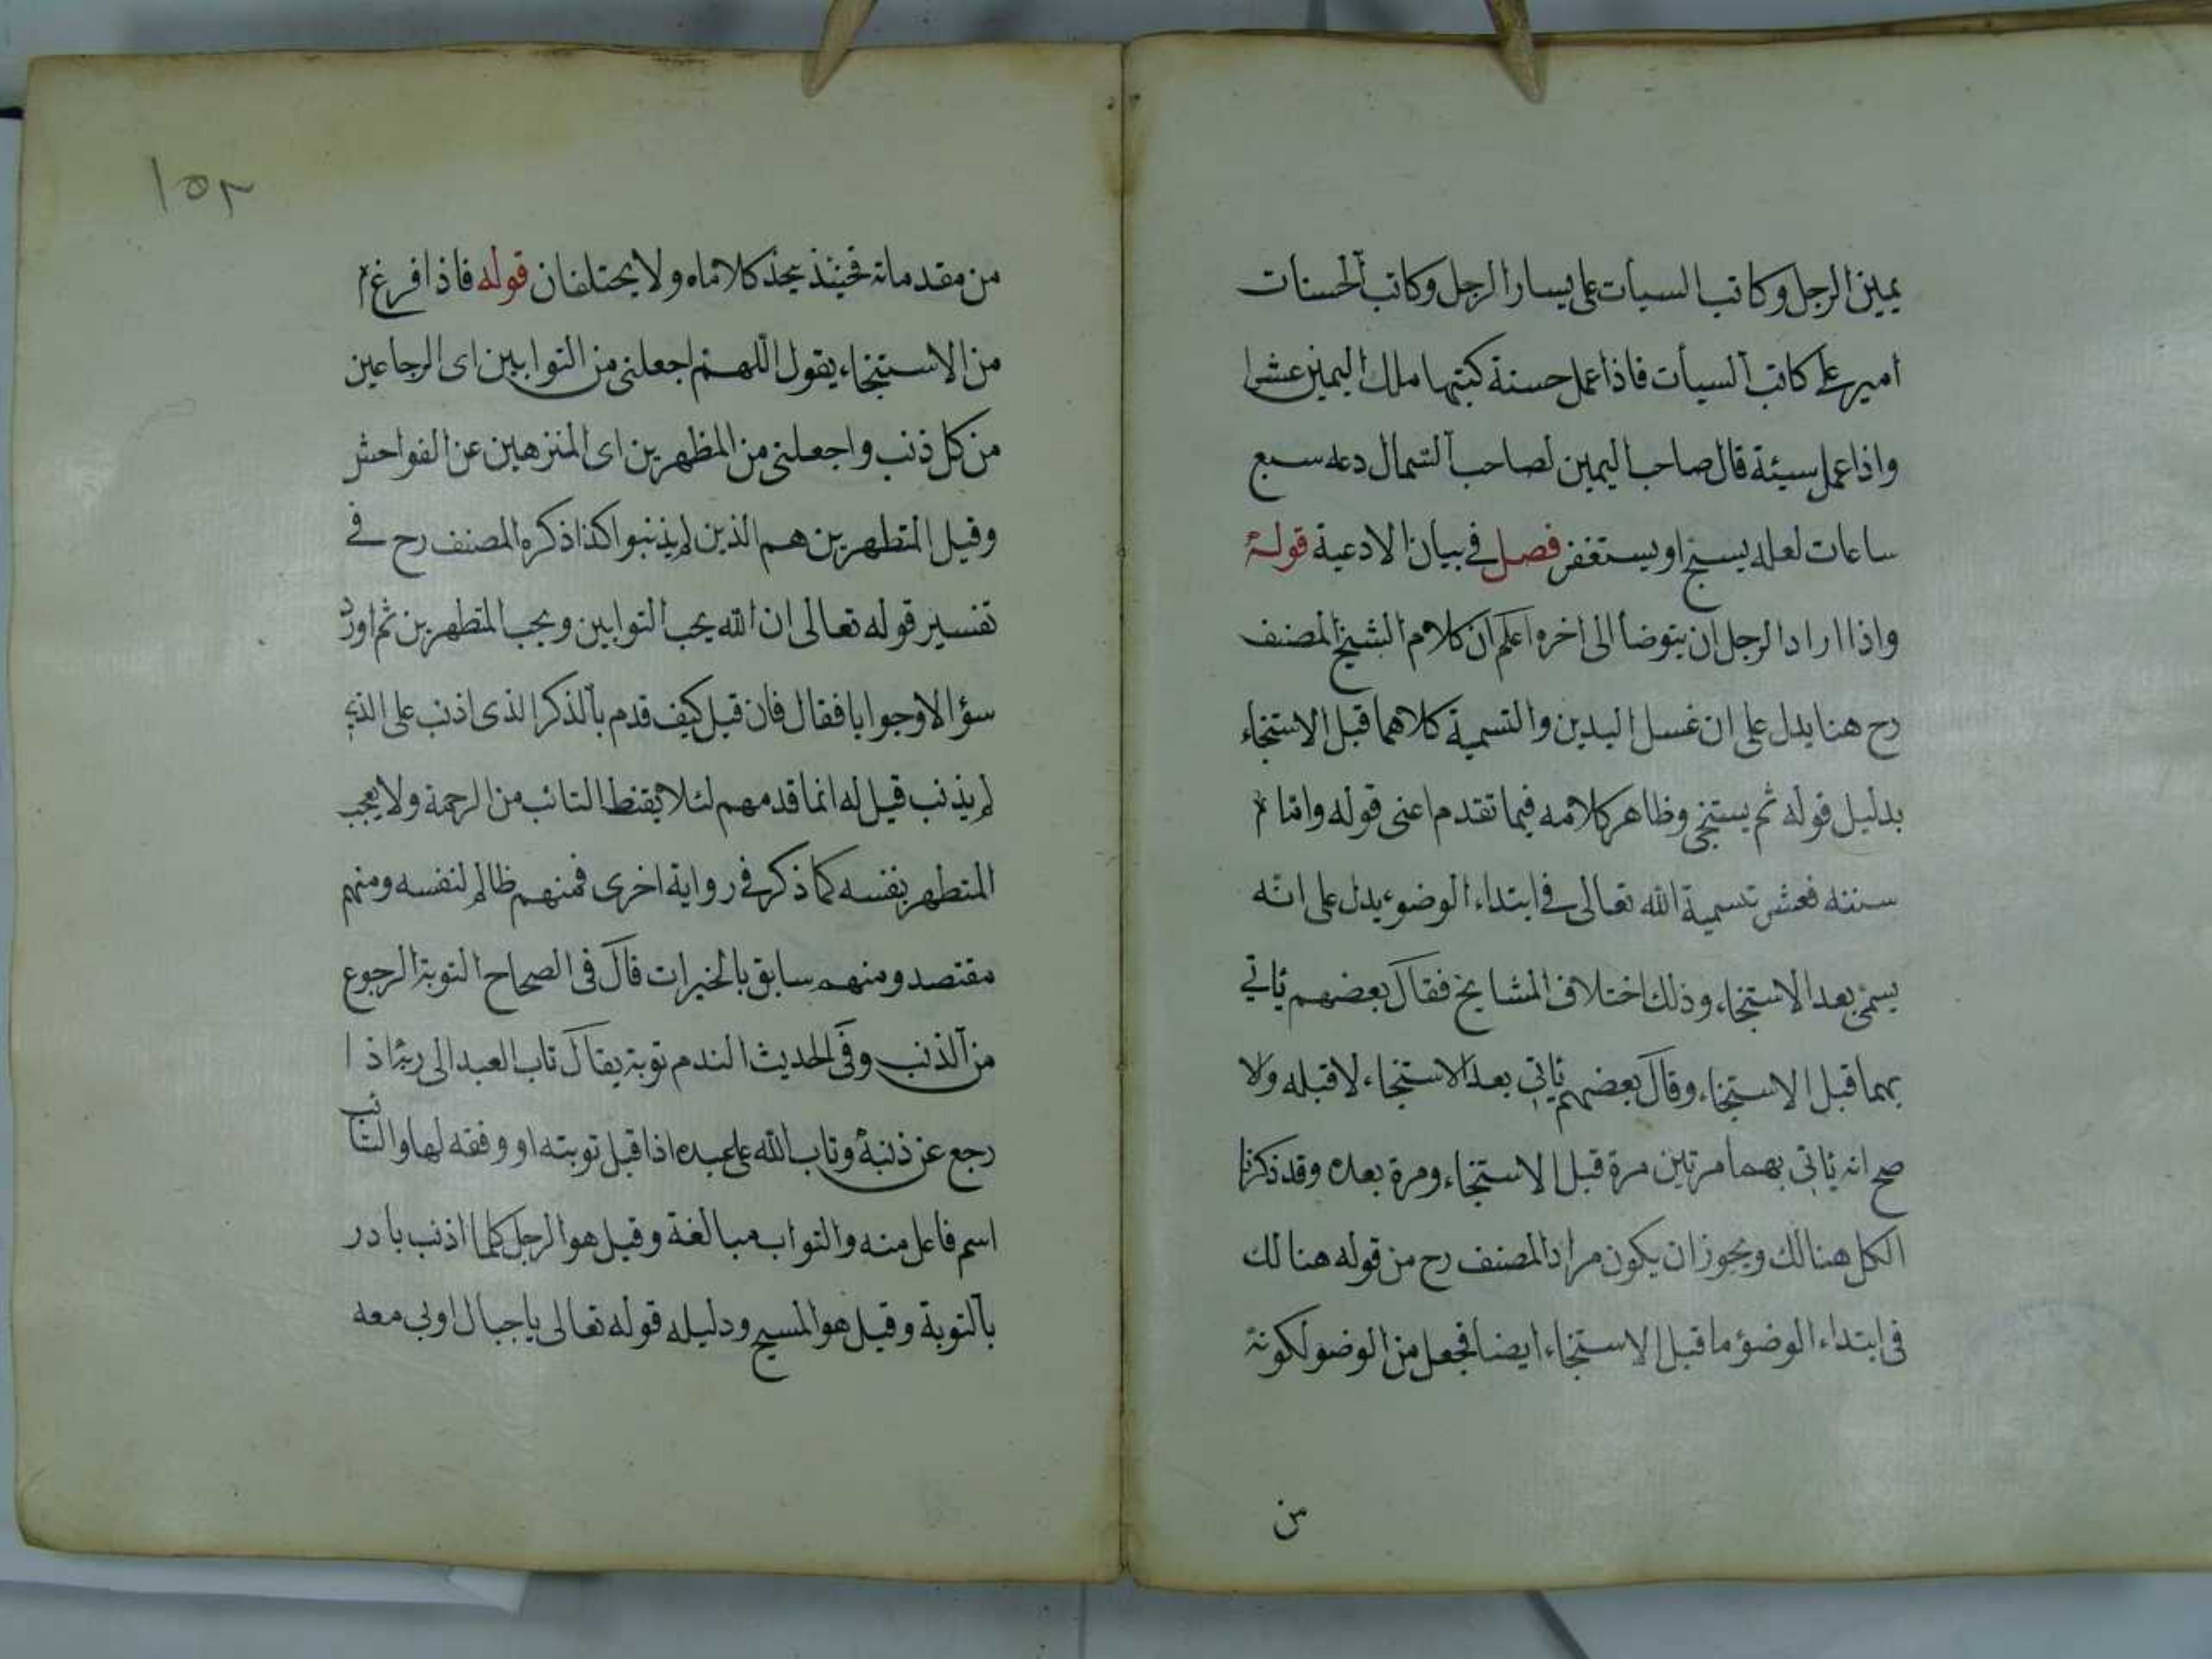 يمين الرجل وكاتب السيأت على يسار الرجل وكاتب الحسنات
امير على كاتب السيأت فاذا عمل حسنة كتبها ملك اليمين عشرا
واذا عمل سيئة قال صاحب اليمين لصاحب الشمال دعه سبع
ساعات لعله يسبح او يستغفر فصل في بيان الادعية قوله
واذا اراد الرجل ان يتوضأ الى اخره اعلم ان كلام الشيخ المصنف
رح هنا يدل على ان غسل اليدين والتسمية كلاهما قبل الاستنجاء
بدليل قوله ثم يستنجى وظاهر كلامه فيما تقدم اعنى قوله واما
سننه فعشر تسمية الله تعالى في ابتداء الوضوء يدل على انه
يسمى بعد الاستنجاء وذلك اختلاف المشايخ فقال بعضهم يأتي
بهما قبل الاستنجاء وقال بعضهم يأتى بعد الاستنجاء لا قبله ولا
صح انه يأتى بهما مرتين مرة قبل الاستنجاء ومرة بعده وقد ذكرنا
الكل هنالك ويجوز ان يكون مراد المصنف رح من قوله هنالك
فى ابتداء الوضوء ما قبل الاستنجاء ايضا فجعل من الوضوء لكونه
من
١٥٢
من مقدماته فحينئذ يتحد كلاماه ولا يختلفان قوله فاذا فرغ
من الاستنجاء يقول اللهم اجعلنى من التوابين اى الرجاعين
من كل ذنب واجعلنى من المطهرين اى المتنزهين عن الفواحش
وقيل المتطهرين هم الذين لم يذنبوا كذا ذكره المصنف رح في
تفسير قوله تعالى ان الله يحب التوابين ويحب المتطهرين ثم اورد
سؤالا وجوابا فقال فان قيل كيف قدم بالذكر الذى اذنب على الذى
لم يذنب قيل له انما قدمهم لئلا يقنط التائب من الرحمة ولا يعجب
المتطهر بنفسه كما ذكر في رواية اخرى فمنهم ظالم لنفسه ومنهم
مقتصد ومنهم سابق بالخيرات قال فى الصحاح التوبة الرجوع
من الذنب وفى الحديث الندم توبة يقال تاب العبد الى ربه اذا
رجع عن ذنبه وتاب الله على عبده اذا قبل توبته او وفقه لها والتائب
اسم فاعل منه والتواب مبالغة وقيل هو الرجل كلما اذنب بادر
بالتوبة وقيل هو المسبح ودليله قوله تعالى يا جبال اوبى معه